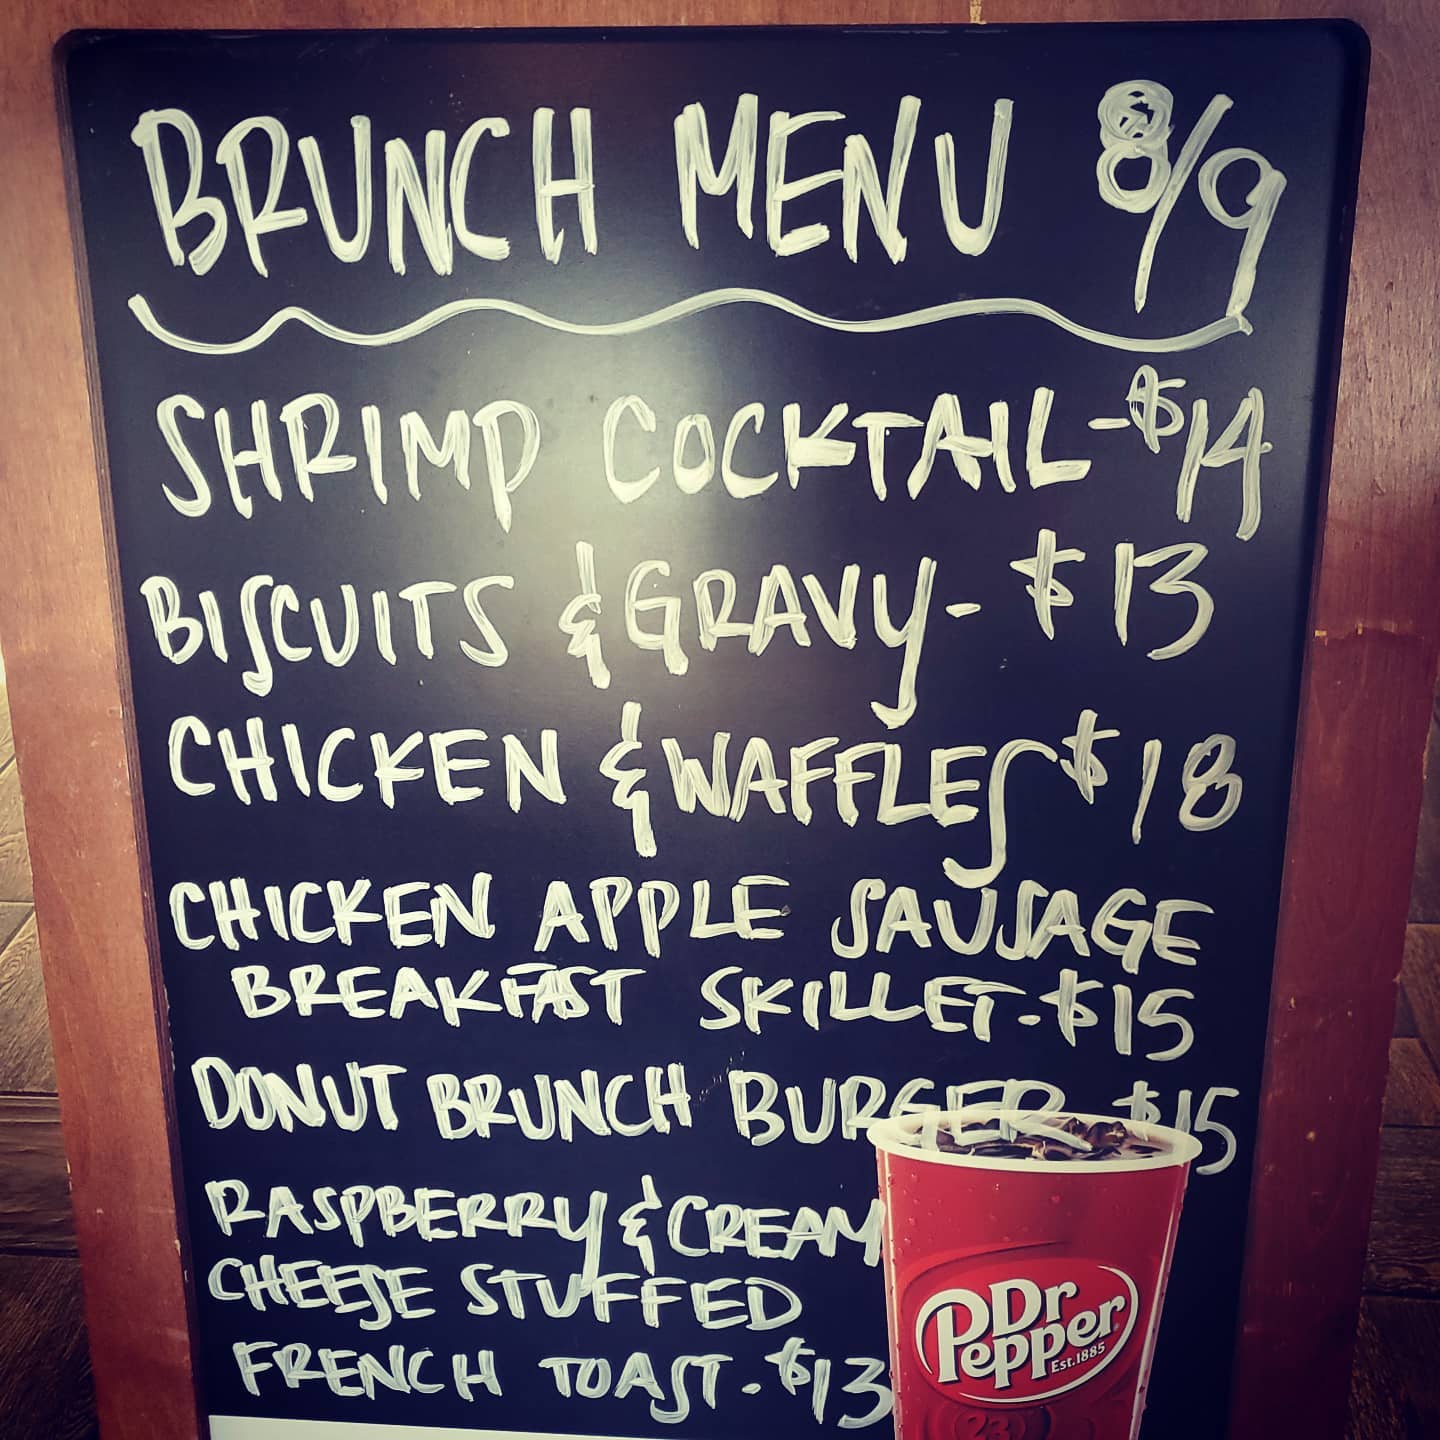 BRUNCH MENU 8/9
SHRIMP COCKTAIL - $14
BISCUITS & GRAVY - $13
CHICKEN & WAFFLES $18
CHICKEN APPLE SAUSAGE
BREAKFAST SKILLET - $15
DONUT BRUNCH BURGER $15
RASPBERRY & CREAM
CHEESE STUFFED
FRENCH TOAST - $13
Dr
Pepper
Est. 1885
23